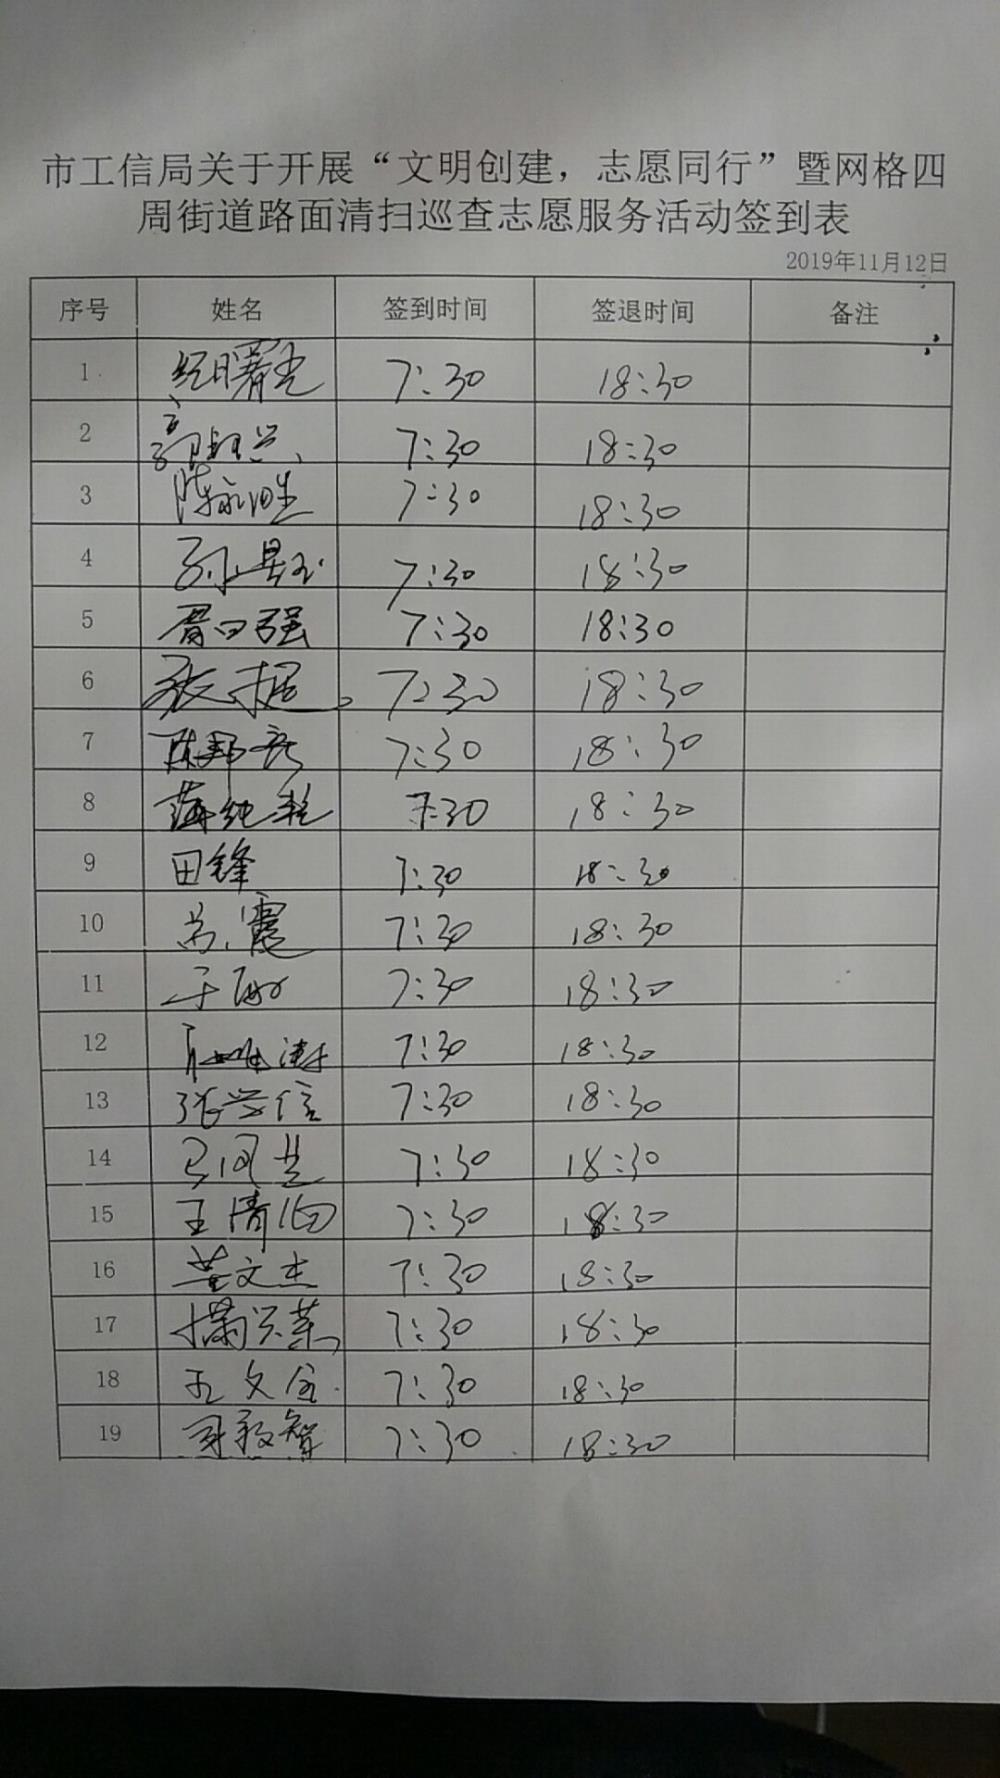 市工信局关于开展“文明创建，志愿同行”暨网格四
周街道路面清扫巡查志愿服务活动签到表
2019年11月12日
序号 姓名 签到时间 签退时间 备注
1 纪曙光 7:30 18:30
2 7:30 18:30
3 陈永胜 7:30 18:30
4 7:30 18:30
5 强 7:30 18:30
6 7:30 18:30
7 7:30 18:30
8 7:30 18:30
9 田锋 7:30 18:30
10 7:30 18:30
11 于敏 7:30 18:30
12 7:30 18:30
13 张兴信 7:30 18:30
14 7:30 18:30
15 王清 7:30 18:30
16 董文杰 7:30 18:30
17 7:30 18:30
18 王文金 7:30 18:30
19 7:30 18:30